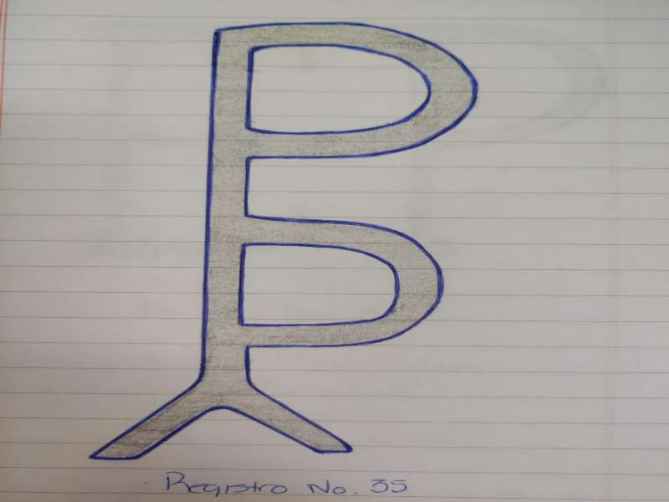 Registro No. 35